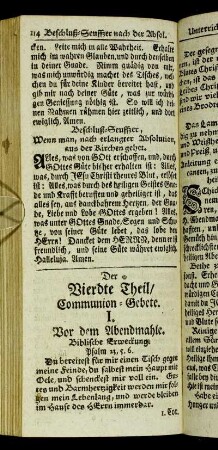 214 Beschluß-Seuffzer nach der Absol.
cken. Leite mich in alle Wahrheit. Erhalte
mich im wahren Glauben, und durch denselben in
deiner Gnade. Nimm gnädig von mir,
was mich unwürdig macht des Tisches, welchen
du für deine Kinder bereitet hast, und
gib mir nach deiner Güte, was zur würdigen
Geniessung nöthig ist. So will ich deinen
Nahmen rühmen hier zeitlich, und dort
ewiglich. Amen.
Beschluß-Seuffzer,
Wenn man, nach erlangter Absolution,
aus der Kirchen gehet.
Alles, was von GOtt erschaffen, und durch
GOttes Güte bißher erhalten ist: Alles,
was durch JEsu Christi theures Blut, erlöset
ist: Alles, was durch des heiligen Geistes Gnade
und Krafft beruffen und geheiliget ist, das
alles sey, aus danckbahrem Hertzen, der Gnade,
Liebe und Lobe GOttes ergeben! Alles,
was unter GOttes Gnade, Segen und Schutze,
von seiner Güte lebet, das lobe den
HErrn! Dancket dem HERRN, denn er ist
freundlich, und seine Güte währet ewiglich,
Halleluja. Amen.
Der
Vierdte Theil/
Communion-Gebete.
I.
Vor dem Abendmahle.
Biblische Erweckung:
Psalm 23, 5. 6.
Du bereitest für mir einen Tisch gegen
meine Feinde, du salbest mein Haupt mit
Oele, und schenckest mir voll ein. Gutes
und Barmhertzigkeit werden mir folgen
mein Lebenlang, und werde bleiben
im Hause des HErrn immerdar.